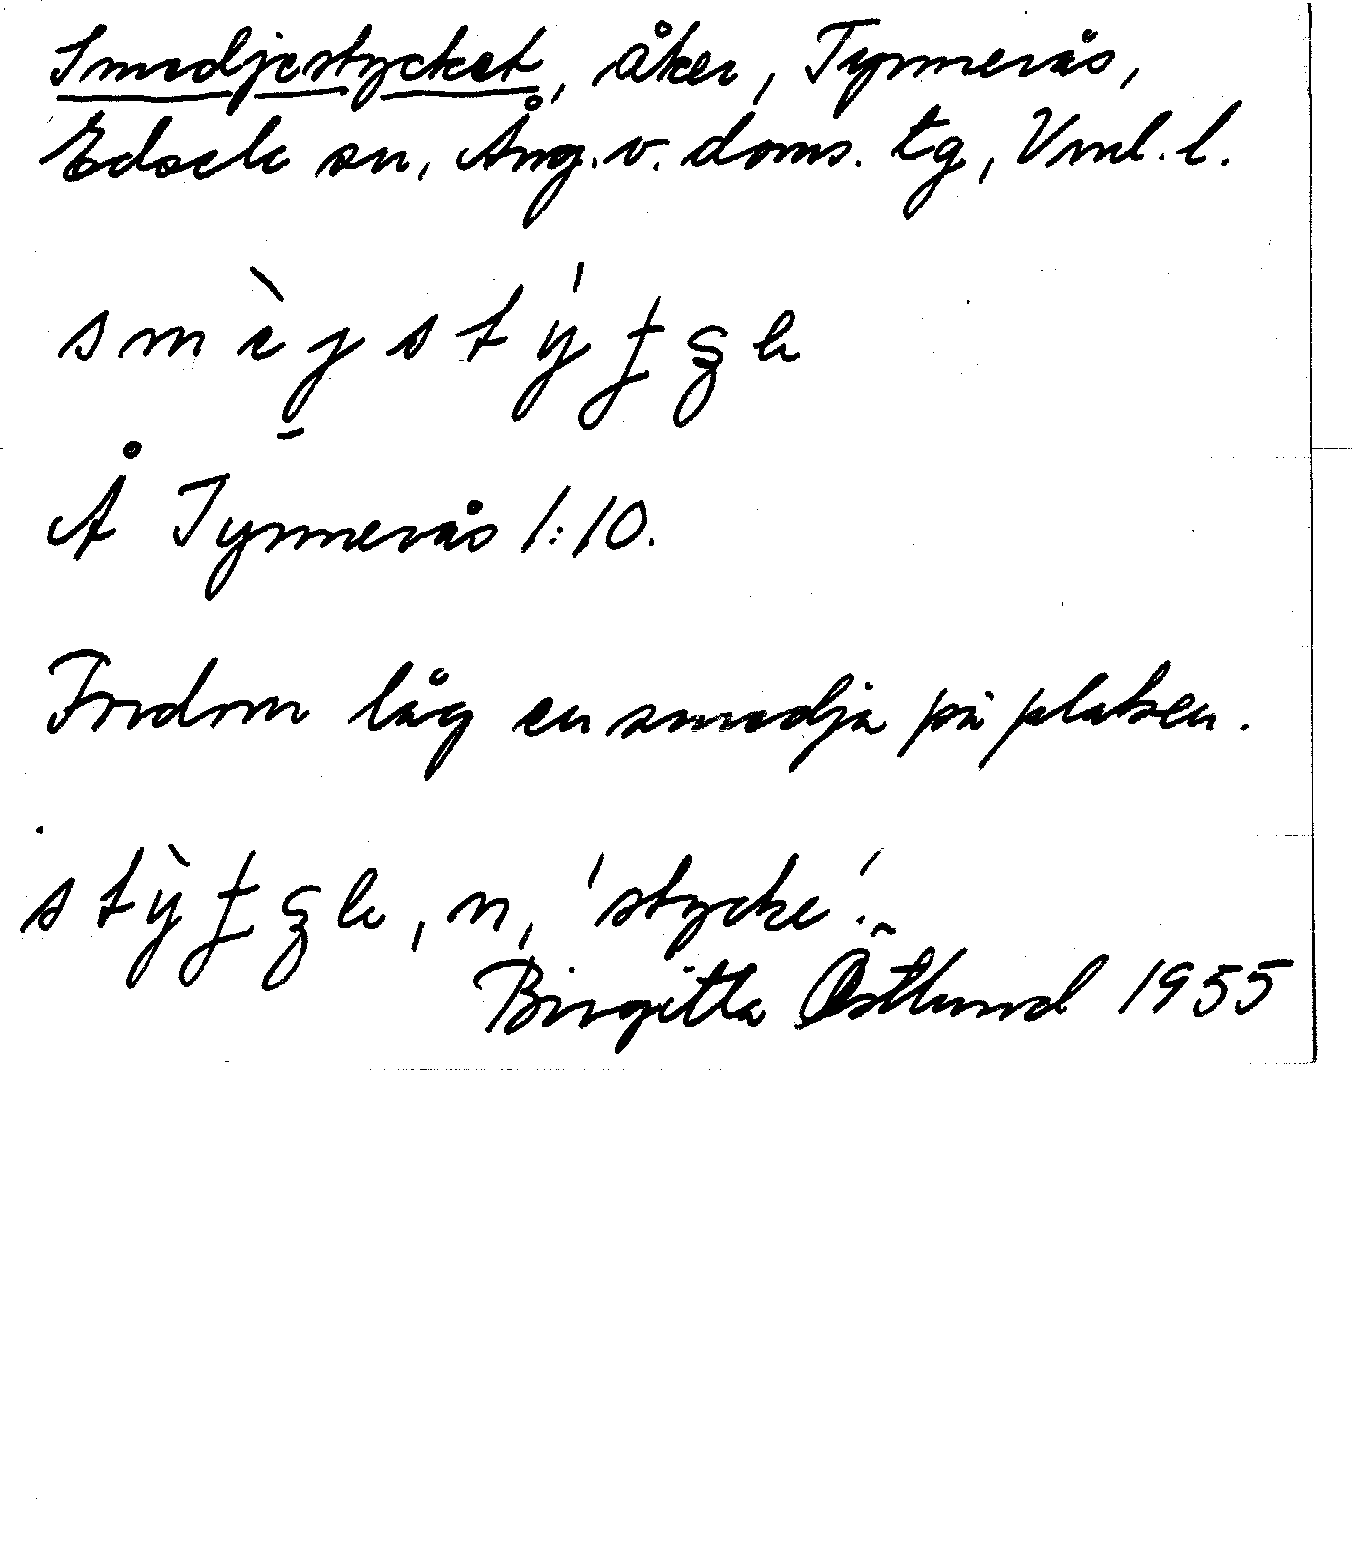 Smedjestycket, åker, Tynnerås,
Edsele sn, Ång. v. doms. tg, Vnl. l.
Å Tynnerås 1:10.
Fordom låg en smedja på platsen.
n, 'stycke'.
Birgitta Östlund 1955